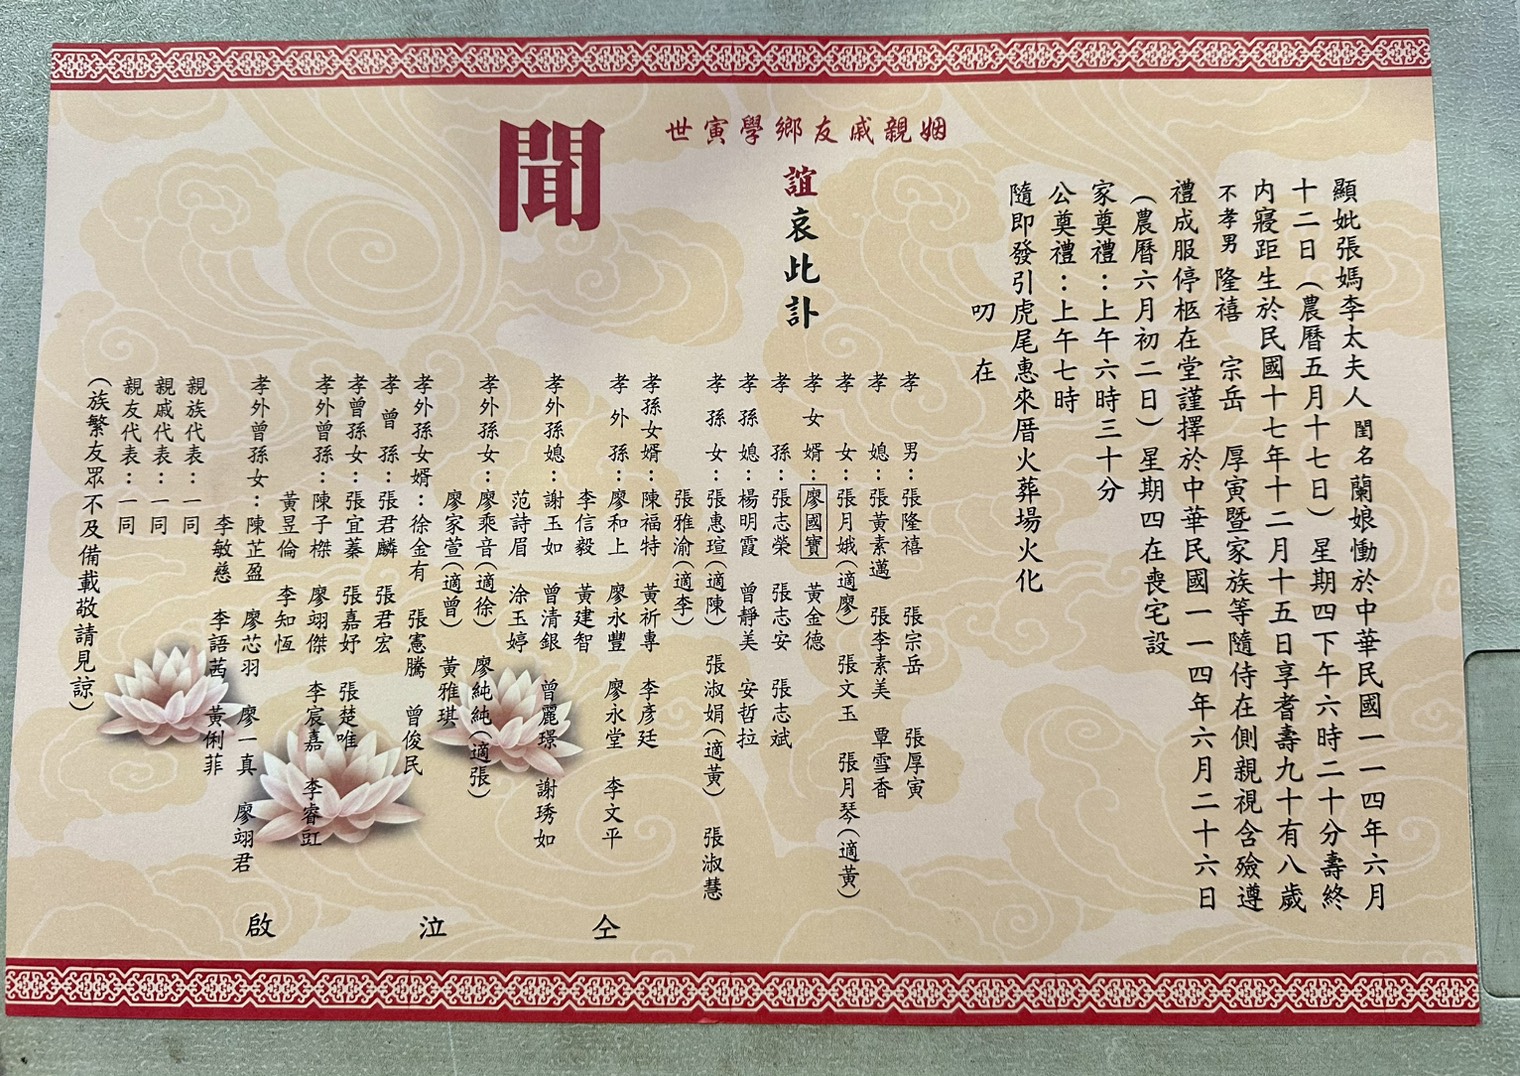 顯妣張媽李太夫人閨名蘭娘慟於中華民國一一四年六月
十二日（農曆五月十七日）星期四下午六時二十分壽終
內寢距生於民國十七年十二月十五日享耆壽九十有八歲
不孝男隆禧 宗岳 厚寅暨家族等隨侍在側親視含殮遵
禮成服停柩在堂謹擇於中華民國一一四年六月二十六日
（農曆六月初二日）星期四在喪宅設
家奠禮：上午六時三十分
公奠禮：上午七時
隨即發引虎尾惠來厝火葬場火化
叨 在
姻親戚友鄉學寅世
誼哀此訃
聞
孝 男：張隆禧 張宗岳 張厚寅
孝 媳：張黃素邁 張李素美 覃雪香
孝 女：張月娥（適廖） 張文玉 張月琴（適黃）
孝女婿：廖國寶 黃金德
孝 孫：張志榮 張志安 張志斌
孝孫媳：楊明霞 曾靜美 安哲拉
孝孫女：張惠瑄（適陳） 張淑娟（適黃） 張淑慧
張雅渝（適李）
孝孫女婿：陳福特 黃祈專 李彥廷
孝外孫：廖和上 廖永豐 廖永堂 李文平
李信毅 黃建智
孝外孫媳：謝玉如 曾清銀 曾麗璟 謝琇如
范詩眉 涂玉婷
孝外孫女：廖乘音（適徐） 廖純純（適張）
廖家萱（適曾） 黃雅琪
孝外孫女婿：徐金有 張憲騰 曾俊民
孝曾孫：張君麟 張君宏
孝曾孫女：張宜蓁 張嘉妤 張楚唯
孝外曾孫：陳子榤 廖翊傑 李宸嘉 李睿㠙
黃昱倫 李知恆
孝外曾孫女：陳芷盈 廖芯羽 廖一真 廖翊君
李敏慈 李語茜 黃俐菲
親族代表：一同
親戚代表：一同
親友代表：一同
（族繁友眾不及備載敬請見諒）
仝 泣 啟